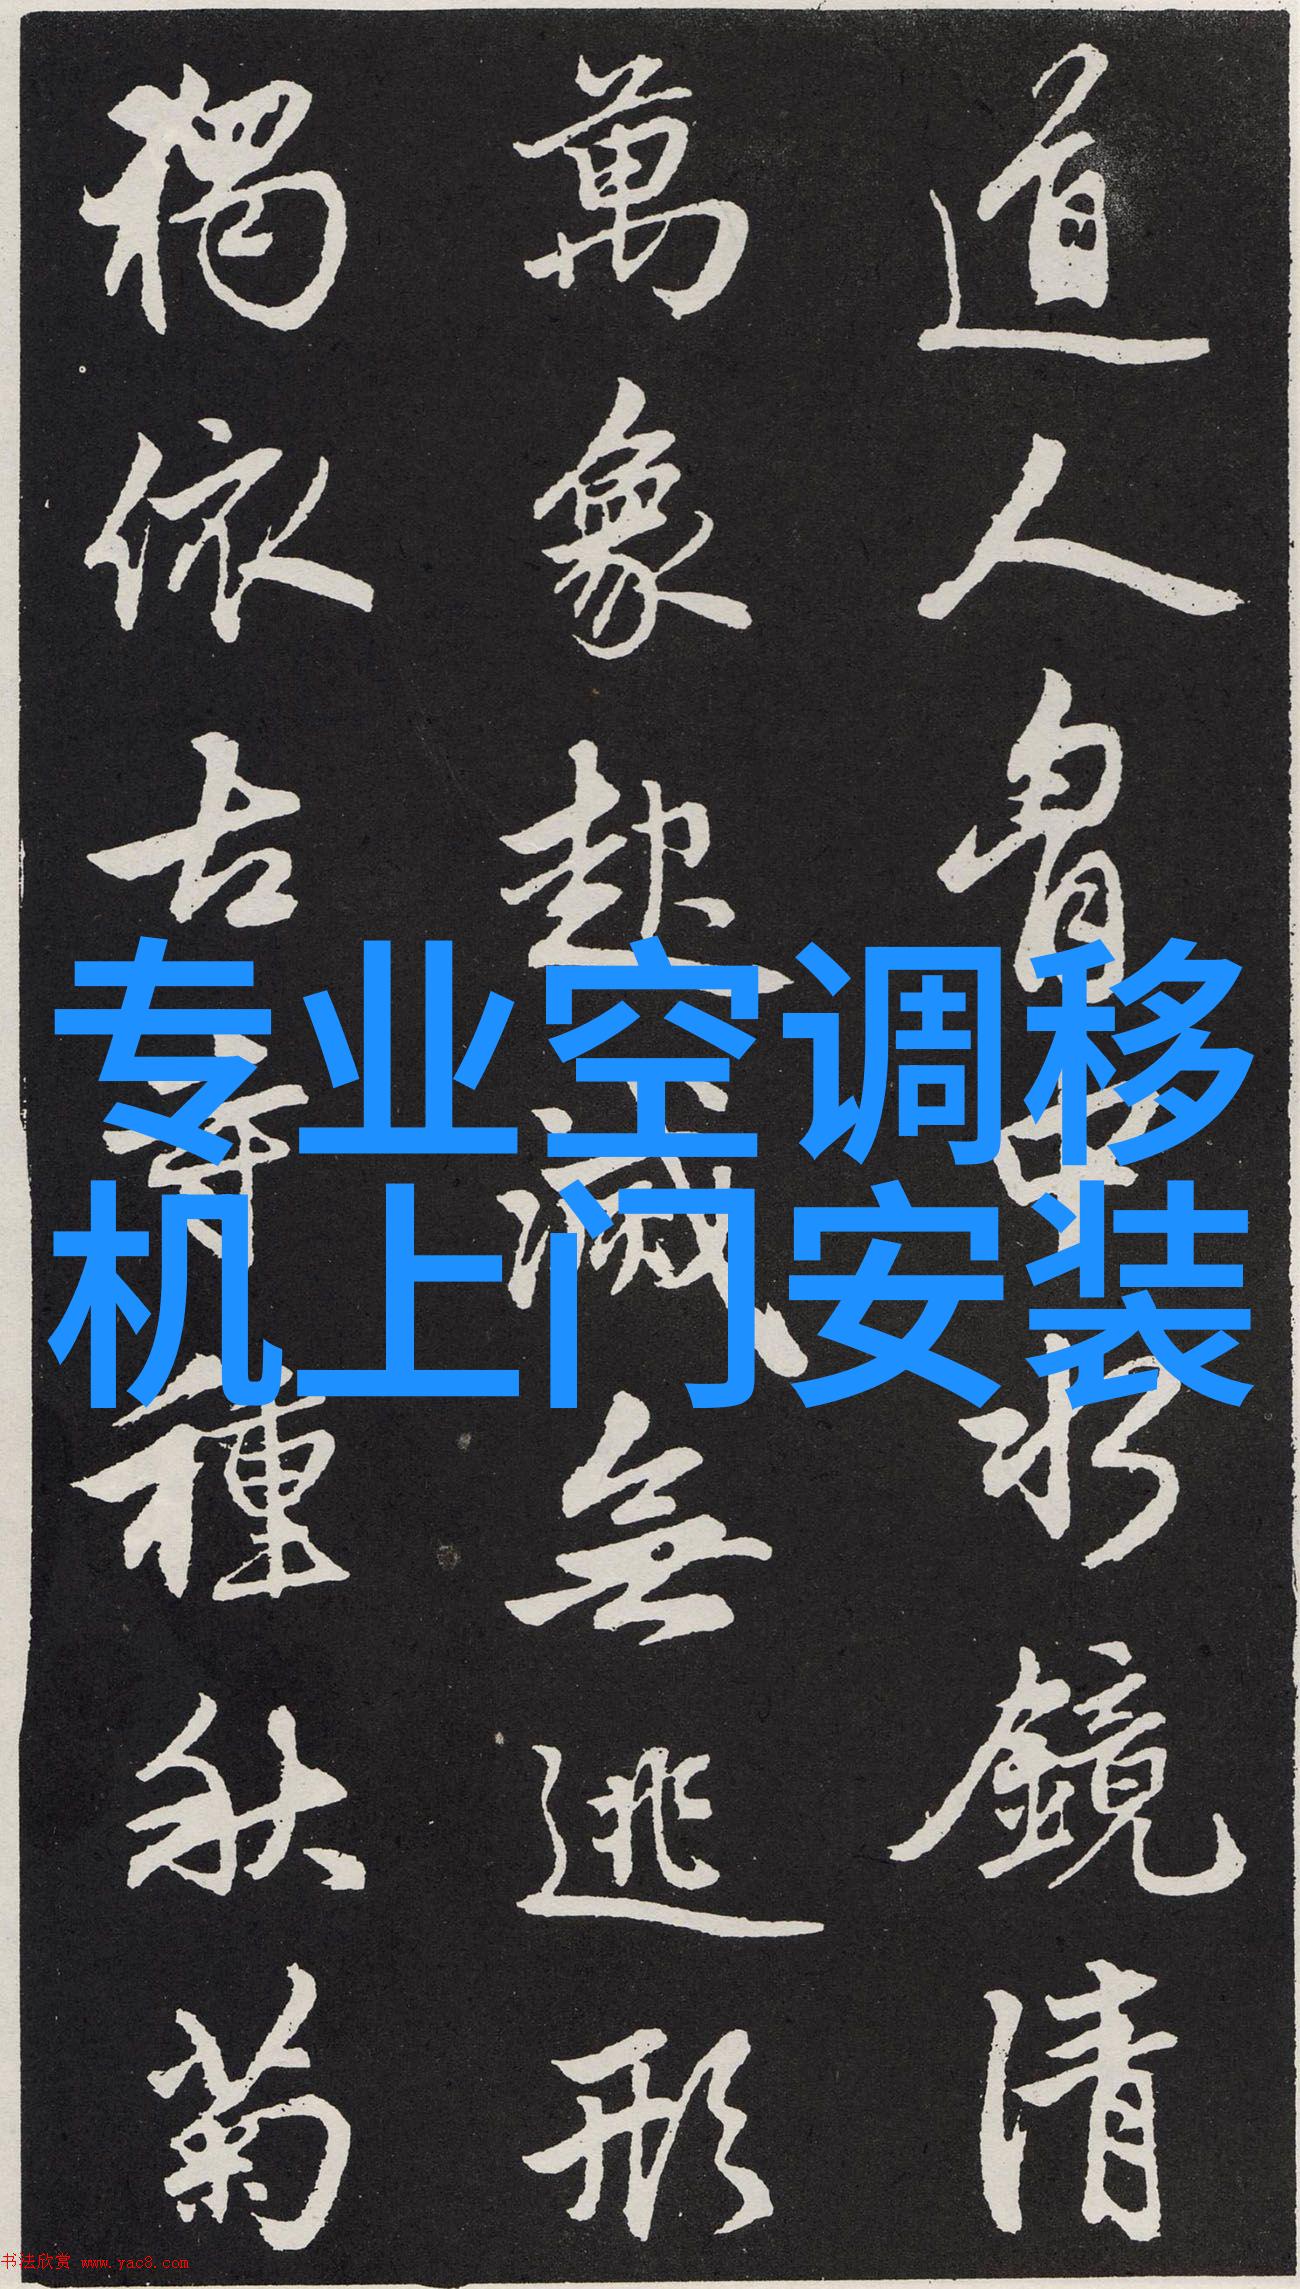 道人胷中水鏡清
萬象起滅無逃形
獨依古寺種秋菊
专业空调移
机上门安装
书法欣赏 www.yac8.com